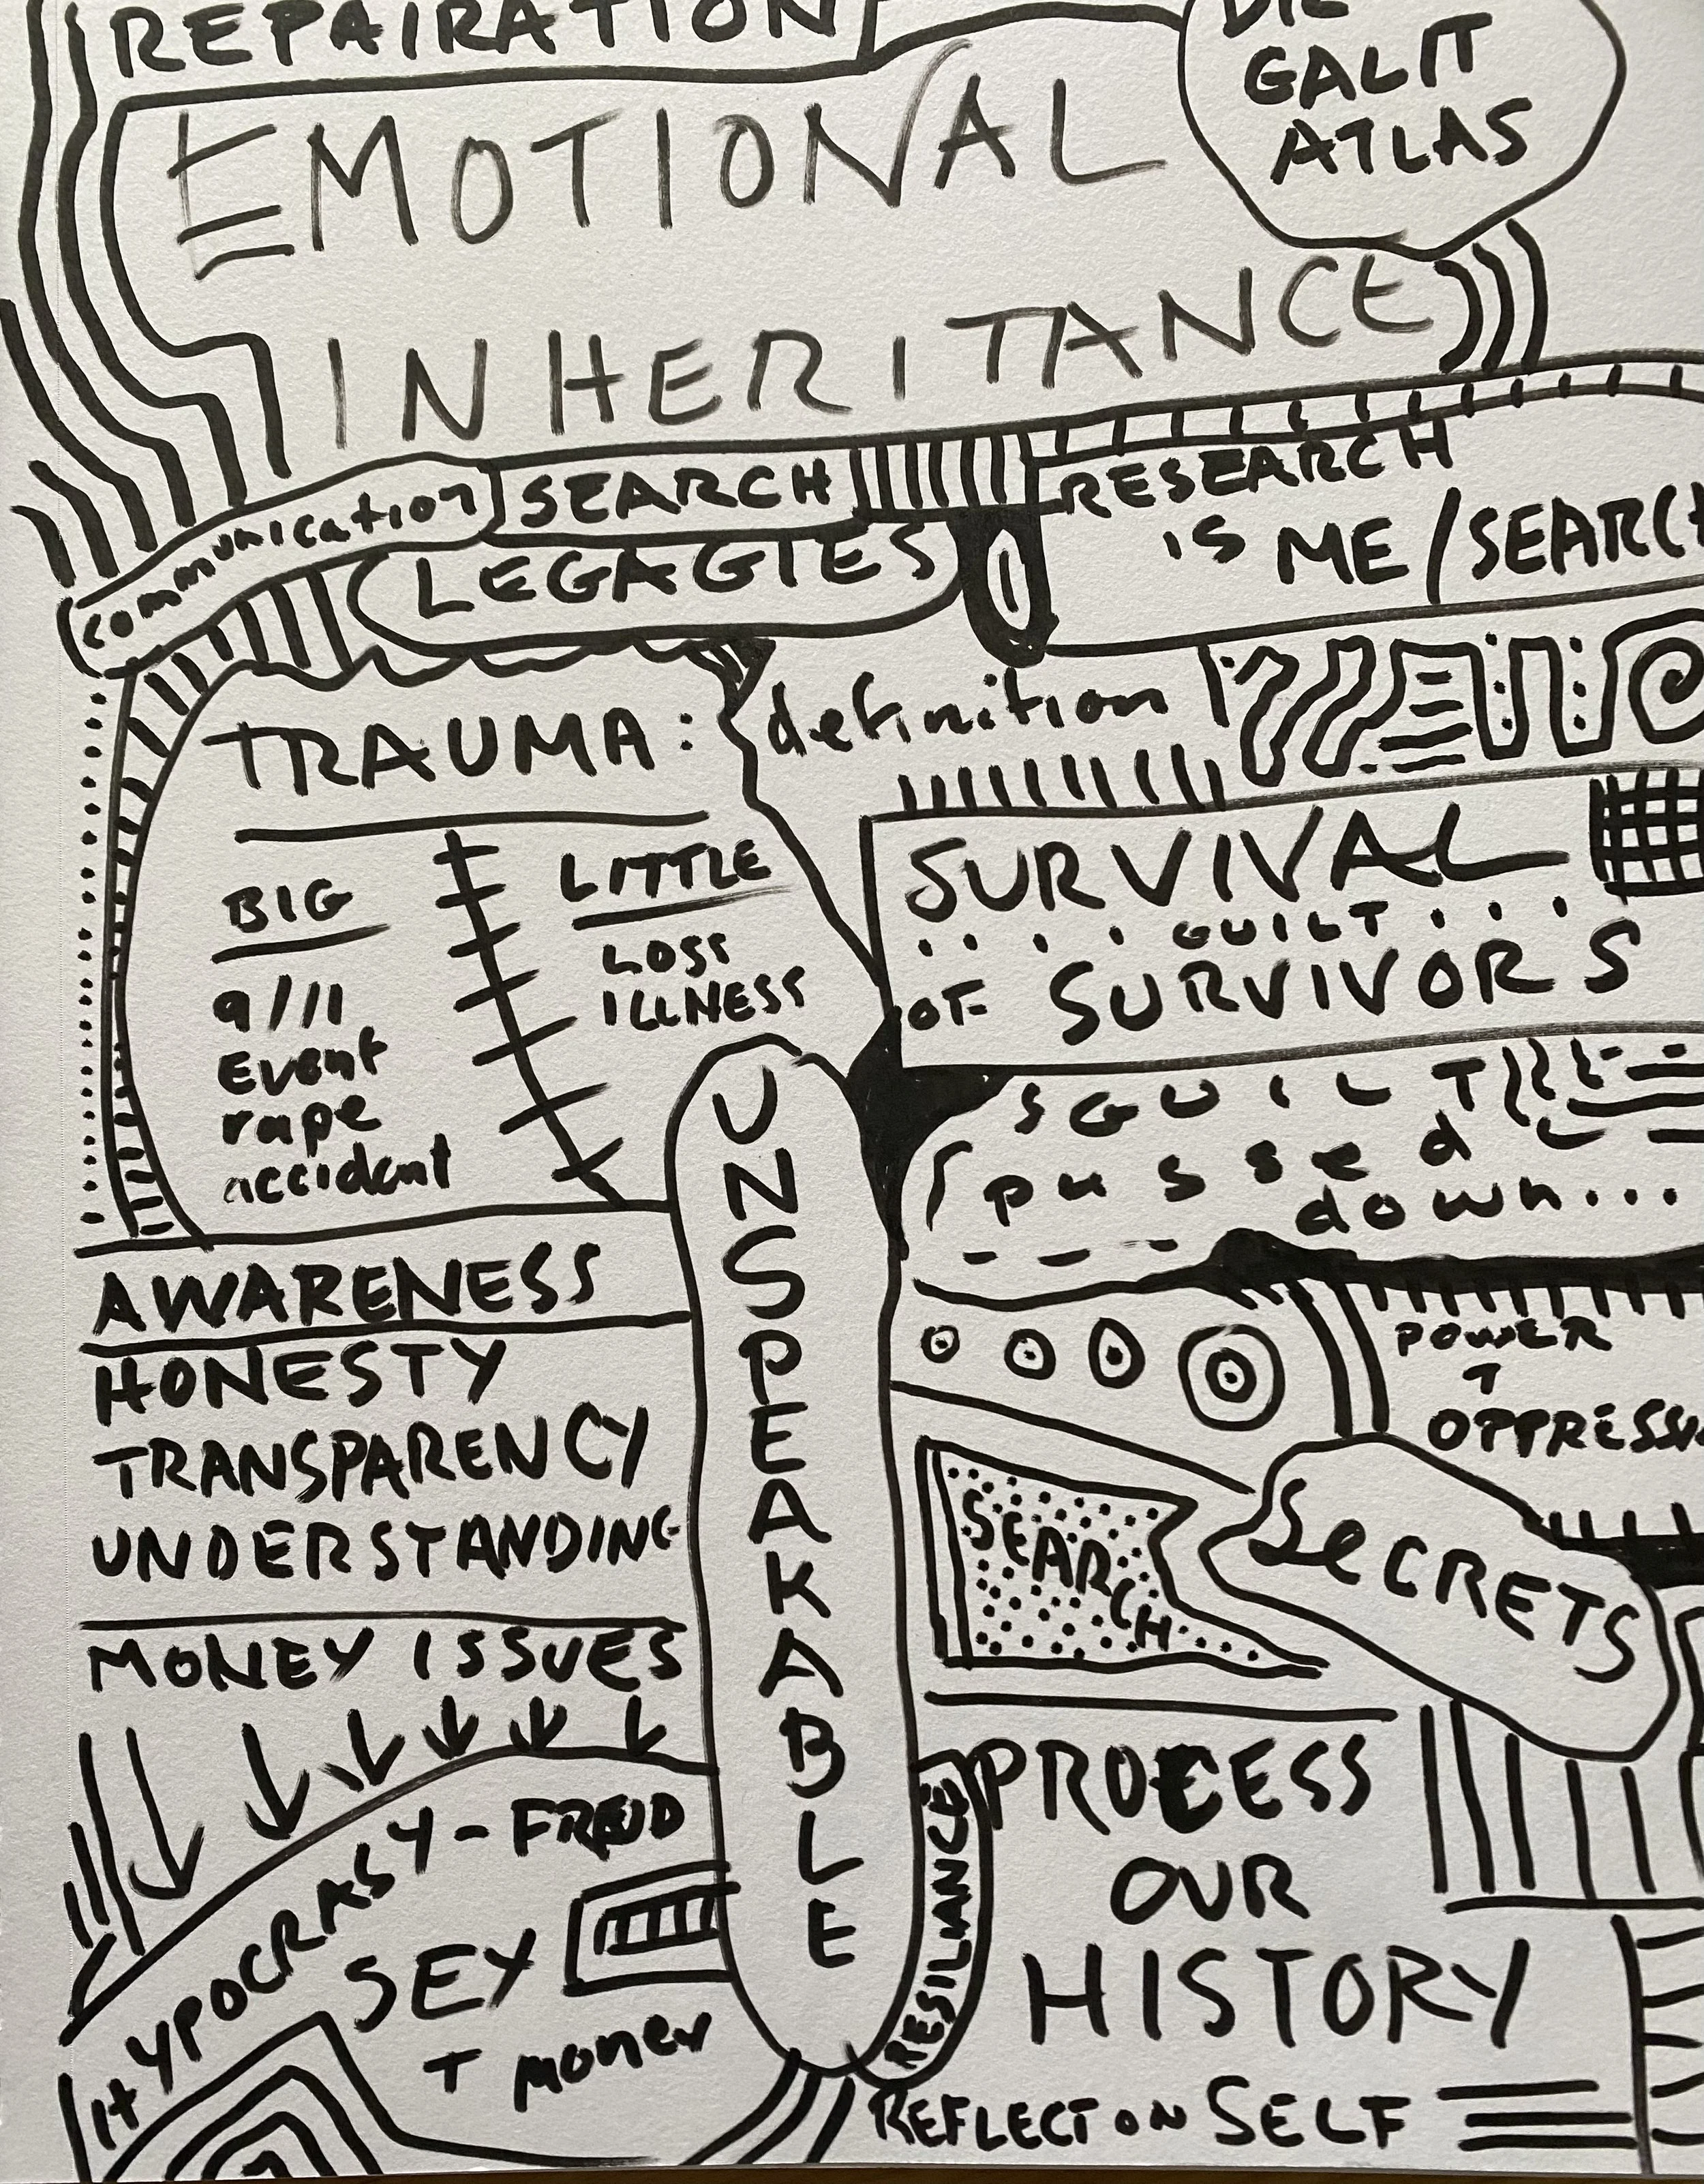 REPAIRATION
DR
GALIT
ATLAS
EMOTIONAL
INHERITANCE
communication
SEARCH
LEGAGIES
RESEARCH
IS ME/SEARCH
TRAUMA:
definition
BIG
9/11
Event
rape
accident
LITTLE
LOSS
ILLNESS
SURVIVAL
GUILT
OF SURVIVORS
GUILT
passed
down...
UNSPEAKABLE
AWARENESS
HONESTY
TRANSPARENCY
UNDERSTANDING
MONEY ISSUES
POWER
+
OPPRESSI
SEARCH
SECRETS
HYPOCRASY - FREUD
SEX
+ money
RESILIANCE
PROCESS
OUR
HISTORY
REFLECT ON SELF